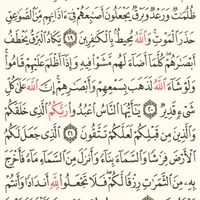 ظُلُمَٰتٌ وَرَعْدٌ وَبَرْقٌ يَجْعَلُونَ أَصَٰبِعَهُمْ فِىٓ ءَاذَانِهِم مِّنَ ٱلصَّوَٰعِقِ
حَذَرَ ٱلْمَوْتِ ۚ وَٱللَّهُ مُحِيطٌۢ بِٱلْكَٰفِرِينَ ١٩ يَكَادُ ٱلْبَرْقُ يَخْطَفُ
أَبْصَٰرَهُمْ ۖ كُلَّمَآ أَضَآءَ لَهُم مَّشَوْا۟ فِيهِ وَإِذَآ أَظْلَمَ عَلَيْهِمْ قَامُوا۟ ۚ
وَلَوْ شَآءَ ٱللَّهُ لَذَهَبَ بِسَمْعِهِمْ وَأَبْصَٰرِهِمْ ۚ إِنَّ ٱللَّهَ عَلَىٰ كُلِّ
شَىْءٍ قَدِيرٌ ٢٠ يَٰٓأَيُّهَا ٱلنَّاسُ ٱعْبُدُوا۟ رَبَّكُمُ ٱلَّذِى خَلَقَكُمْ
وَٱلَّذِينَ مِن قَبْلِكُمْ لَعَلَّكُمْ تَتَّقُونَ ٢١ ٱلَّذِى جَعَلَ لَكُمُ
ٱلْأَرْضَ فِرَٰشًا وَٱلسَّمَآءَ بِنَآءً وَأَنزَلَ مِنَ ٱلسَّمَآءِ مَآءً فَأَخْرَجَ
بِهِۦ مِنَ ٱلثَّمَرَٰتِ رِزْقًا لَّكُمْ ۖ فَلَا تَجْعَلُوا۟ لِلَّهِ أَندَادًا وَأَنتُمْ